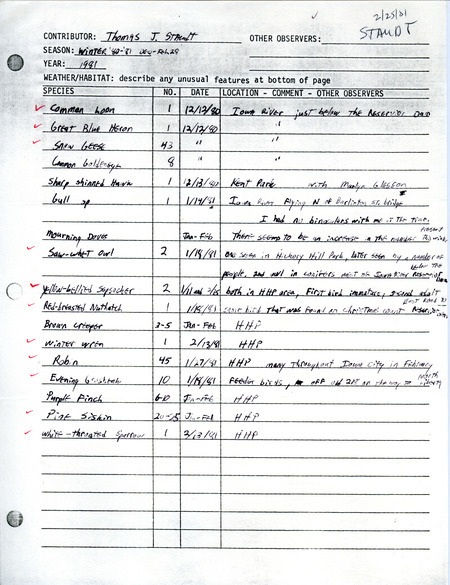 2/25/81
STAUDT
CONTRIBUTOR: Thomas J. STAUDT OTHER OBSERVERS:
SEASON: WINTER '80-'81 Dec-Feb. 28
YEAR: 1981
WEATHER/HABITAT: describe any unusual features at bottom of page
SPECIES NO. DATE LOCATION - COMMENT - OTHER OBSERVERS
Common Loon 1 12/12/80 Iowa River just below the Reservoir Dam
Great Blue Heron 1 12/12/80 "
Snow Geese 43 " "
Common Goldeneye 8 " "
Sharp shinned Hawk 1 12/13/80 Kent Park with Marilyn
Gull sp 1 1/14/81 Iowa River Flying N of Burlington St. bridge
I had no binoculars with me at the time.
Mourning Doves Jan-Feb There seems to be an increase in the number present this winter
Saw-whet Owl 2 1/18/81 one seen in Hickory Hill Park, later seen by a number of
people, and in conifers west of
Yellow-bellied Sapsucker 2 both in HHP area, First bird immature, second adult
Red-breasted Nuthatch 1 1/18/81 same bird that was found on Christmas count
Brown Creeper 3-5 Jan-Feb HHP
Winter Wren 1 2/13/81 HHP
Robin 45 1/27/81 HHP many throughout Iowa City in February
Evening Grosbeak 10 1/18/81 Feeder birds, off old 218 on the way to North Liberty
Purple Finch 6-10 Jan-Feb HHP
Pine Siskin 20-25 Jan-Feb HHP
White-throated Sparrow 1 2/13/81 HHP